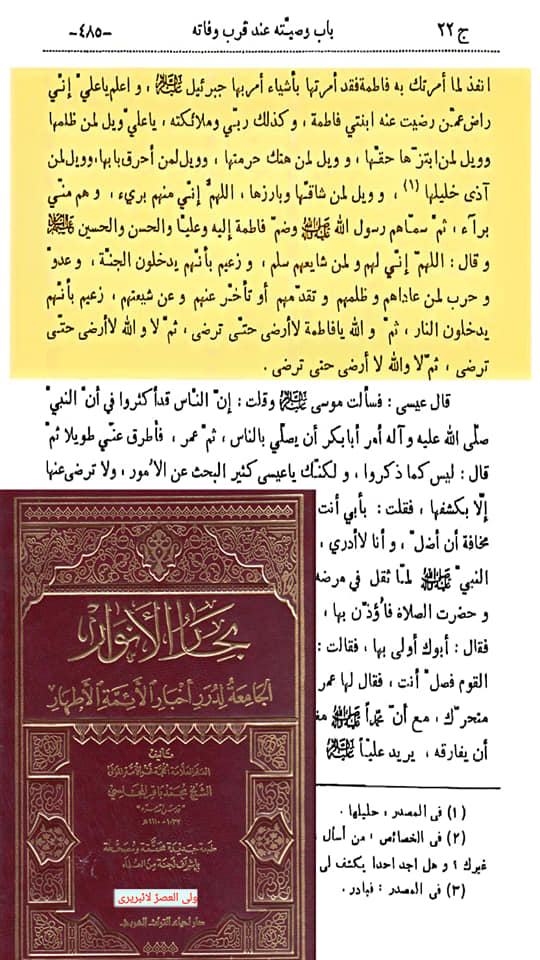 ج ٢٢ باب وصيّته عند قرب وفاته -٤٨٥-
انفذ لما أمرتك به فاطمة فقد أمرتها بأشياء أمر بها جبرئيل عليه السلام ، و اعلم ياعلي إنّي
راض عمّن رضيت عنه ابنتي فاطمة ، و كذلك ربّي وملائكته ، ياعلي ويل لمن ظلمها
وويل لمن ابتزّها حقّها ، و ويل لمن هتك حرمتها ، وويل لمن أحرق بابها، وويل لمن
آذى خليلها (١) ، و ويل لمن شاقّها وبارزها ، اللهمّ إنّي منهم بريء ، و هم منّي
برآء ، ثمّ سمّاهم رسول الله وضمّ فاطمة إليه وعليّا والحسن والحسين
و قال : اللهمّ إنّي لهم و لمن شايعهم سلم ، و زعيم بأنّهم يدخلون الجنّة ، و عدوّ
و حرب لمن عاداهم و ظلمهم و تقدّمهم أو تأخّر عنهم و عن شيعتهم ، زعيم بأنّهم
يدخلون النار ، ثمّ و الله يافاطمة لاأرضى حتّى ترضى ، ثمّ لا و الله لاأرضى حتّى
ترضى ، ثمّ لا والله لا أرضى حتى ترضى .
قال عيسى : فسألت موسى وقلت : إنّ الناس قدأكثروا في أنّ النبيّ
صلّى الله عليه و آله أمر أبابكر أن يصلّي بالناس ، ثمّ عمر ، فأطرق عنّي طويلا ثمّ
قال : ليس كما ذكروا ، و لكنّك ياعيسى كثير البحث عن الاُمور ، ولا ترضى عنها
إلّا بكشفها ، فقلت : بأبي أنت
مخافة أن أضلّ ، و أنا لاأدري ،
النبيّ لمّا ثقل في مرضه
و حضرت الصلاة فاُؤذن بها ،
فقال : أبوك أولى بها ، فقالت :
القوم فصلّ أنت ، فقال لها عمر
متحرّك ، مع أنّ محمّداً
أن يفارقه ، يريد عليّاً
(١) فى المصدر : حليلها .
(٢) فى الخصائص : من أسأل
غيرك ؛ و هل اجد احدا يكشف لى
(٣) فى المصدر : فبادر .
بحار الأنوار
الجامعة لدرر أخبار الأئمة الأطهار
تأليف
العلم العلامة الحجة فخر الأمة المولى
الشيخ محمد باقر المجلسي
قدس الله سره
١٠٣٧-١١١٠هـ
طبعة جديدة محققة ومصححة
بإشراف لجنة من العلماء
ولی العصرؑ لائبریری
دار إحياء التراث العربي